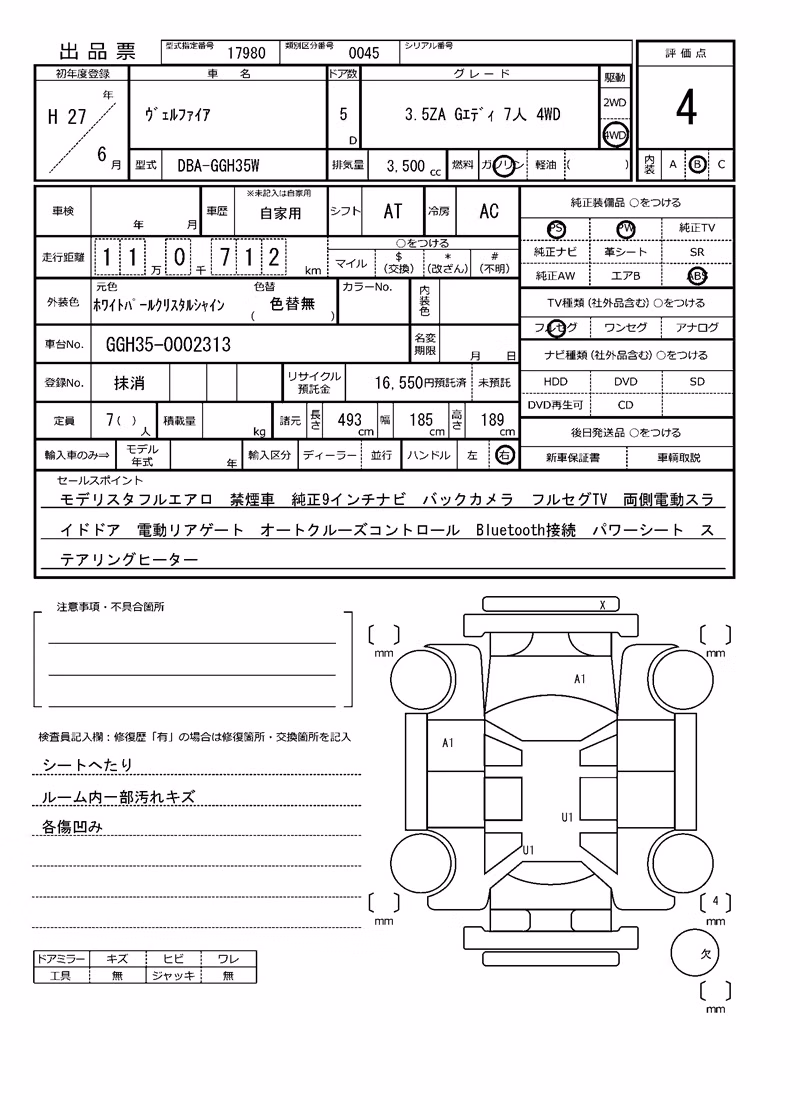 出品票
型式指定番号 17980 類別区分番号 0045 シリアル番号
評価点
初年度登録 車名 ドア数 グレード 駆動
H 27 年 6 月
ヴェルファイア
5 D
3.5ZA Gエディ 7人 4WD
2WD
4WD
4
型式 DBA-GGH35W 排気量 3,500 cc 燃料 ガソリン 軽油 ( )
内装 A B C
車検 年 月 車歴 ※未記入は自家用 自家用 シフト AT 冷房 AC
純正装備品 ○をつける
PS PW 純正TV
純正ナビ 革シート SR
純正AW エアB ABS
走行距離 11万0千712 km
○をつける
マイル $(交換) *(改ざん) #(不明)
外装色 元色 ホワイトパールクリスタルシャイン 色替 ( 色替無 ) カラーNo. 内装色
TV種類(社外品含む)○をつける
フルセグ ワンセグ アナログ
車台No. GGH35-0002313 名変期限 月 日
ナビ種類(社外品含む)○をつける
HDD DVD SD
DVD再生可 CD
登録No. 抹消 リサイクル預託金 16,550円預託済 未預託
定員 7( )人 積載量 kg 諸元 長さ 493cm 幅 185cm 高さ 189cm
後日発送品 ○をつける
新車保証書 車輌取説
輸入車のみ⇒ モデル年式 年 輸入区分 ディーラー 並行 ハンドル 左 右
セールスポイント
モデリスタフルエアロ 禁煙車 純正9インチナビ バックカメラ フルセグTV 両側電動スラ
イドドア 電動リアゲート オートクルーズコントロール Bluetooth接続 パワーシート ス
テアリングヒーター
注意事項・不具合箇所
検査員記入欄:修復歴「有」の場合は修復箇所・交換箇所を記入
シートへたり
ルーム内一部汚れキズ
各傷凹み
ドアミラー キズ ヒビ ワレ
工具 無 ジャッキ 無
X
mm
mm
A1
A1
U1
U1
mm
4
mm
欠
mm